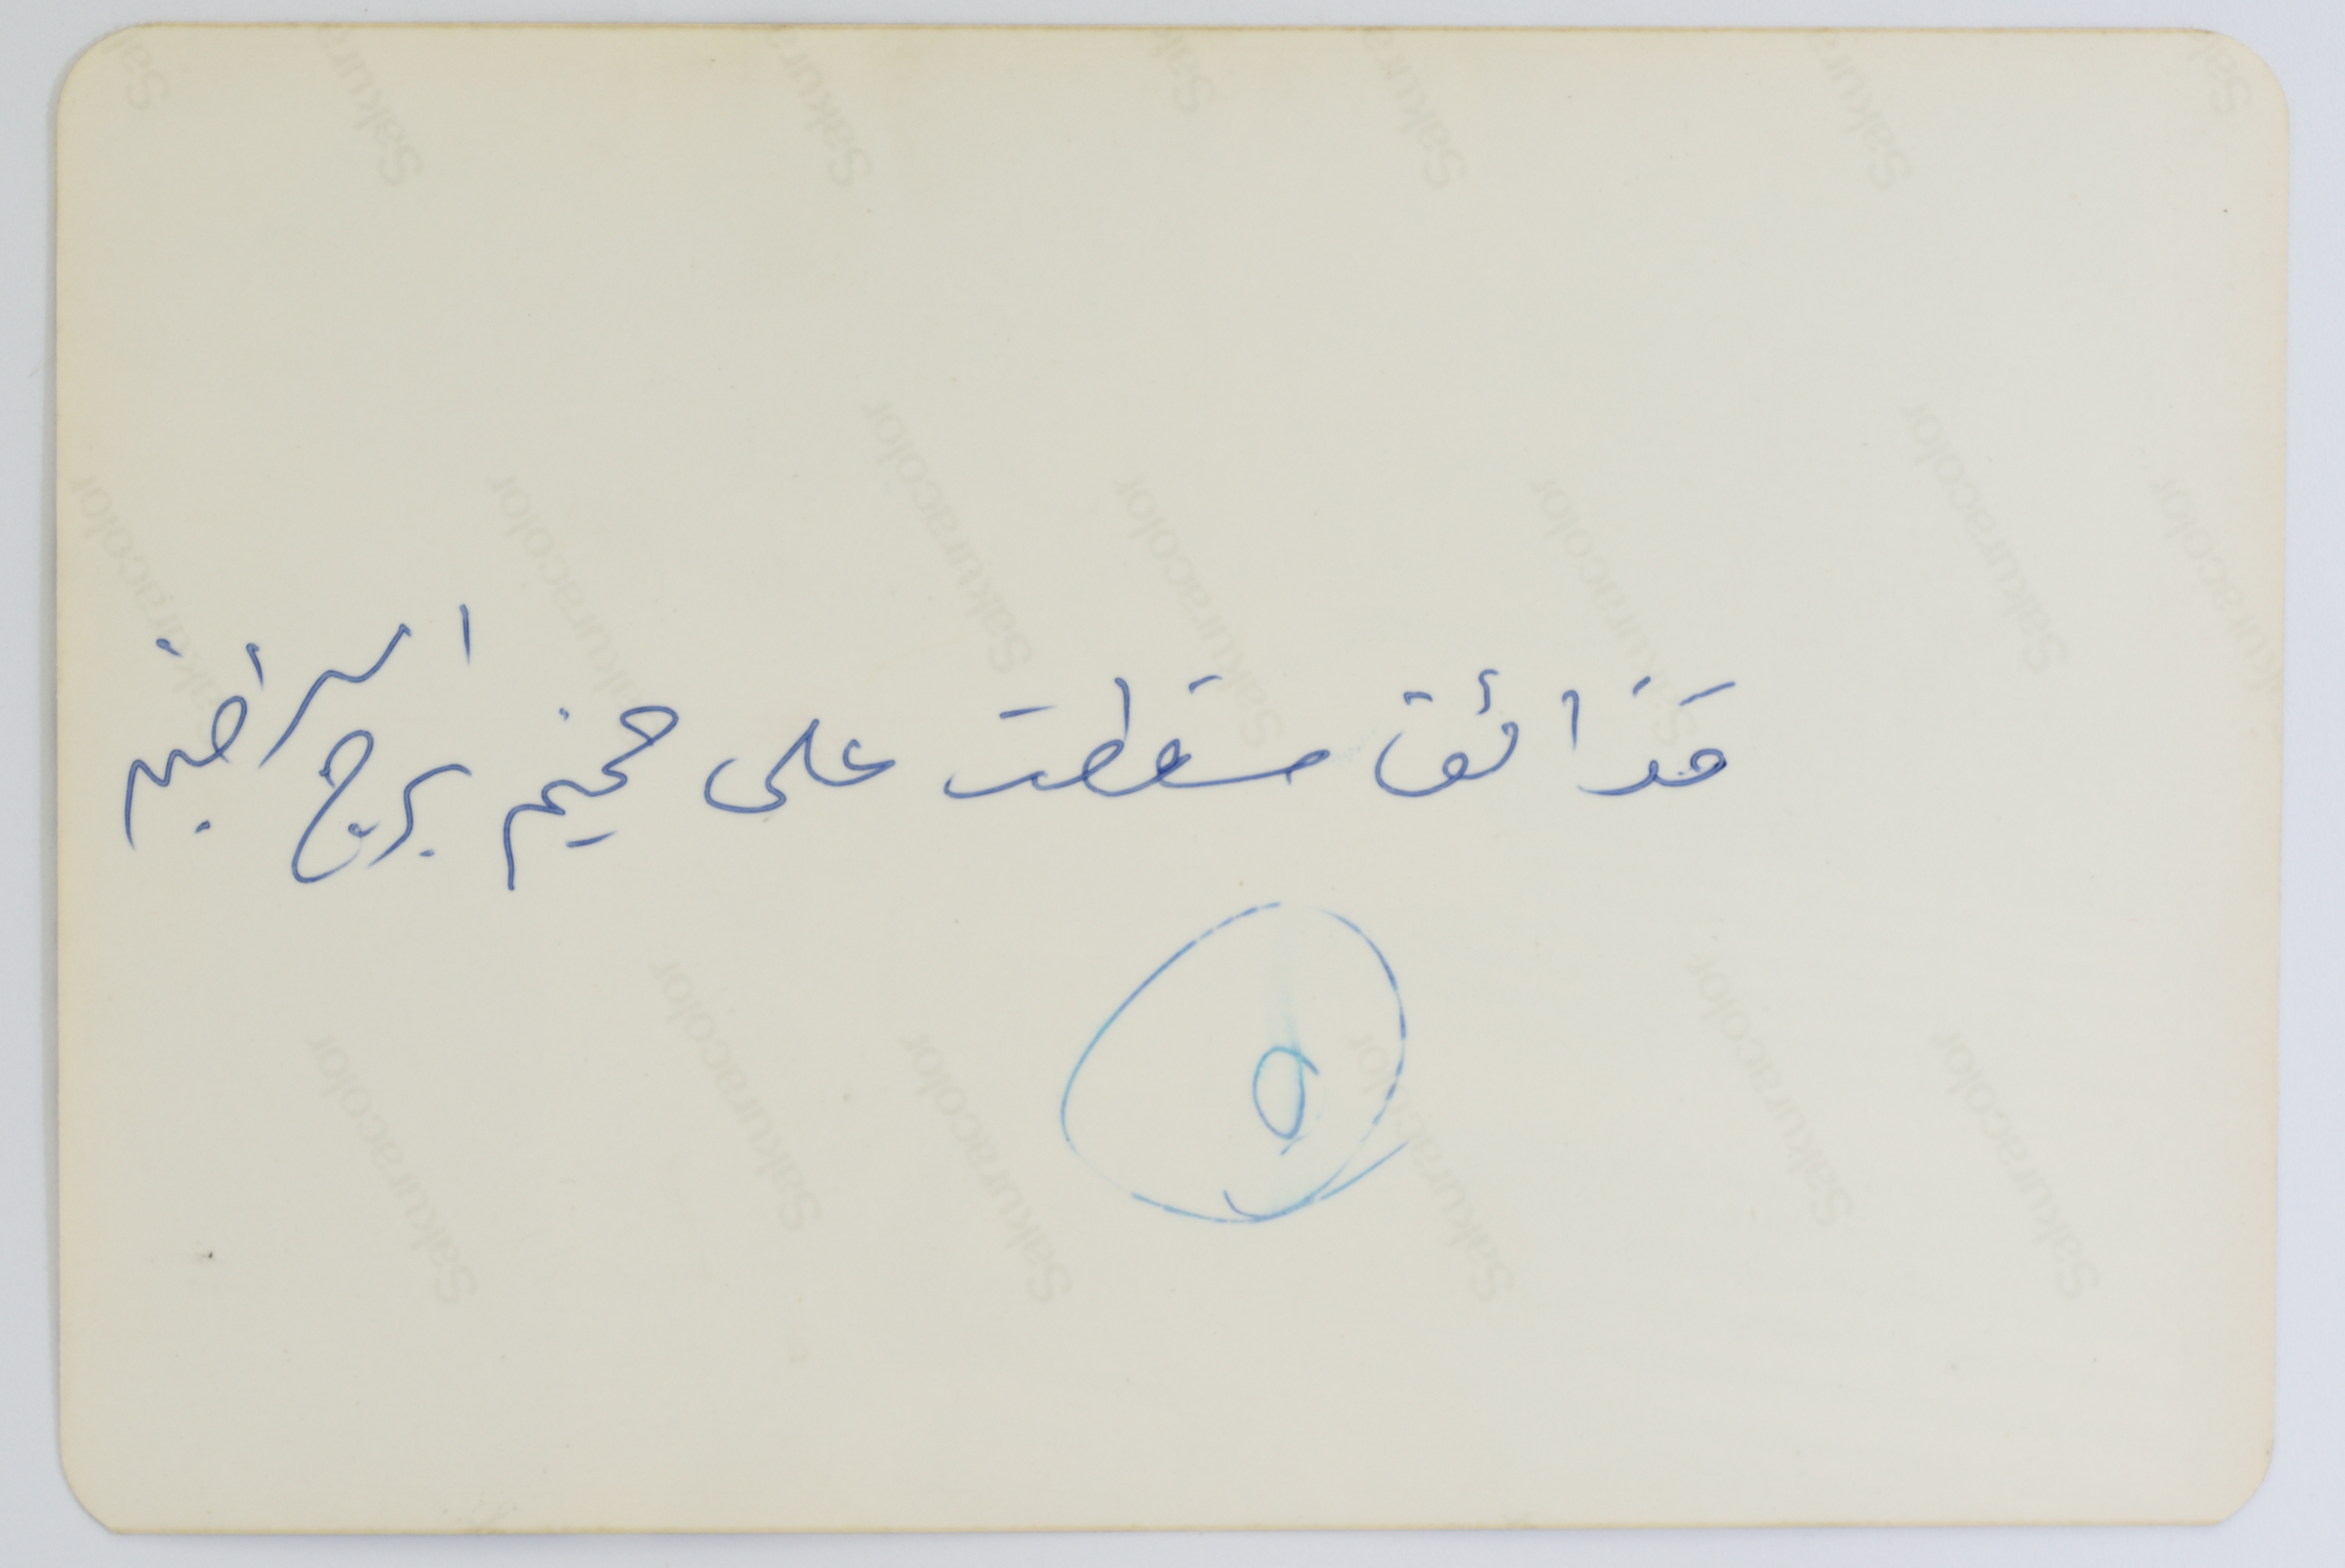 قذائف سقطت على مخيم برج البراجنة
٥
Sakuracolor